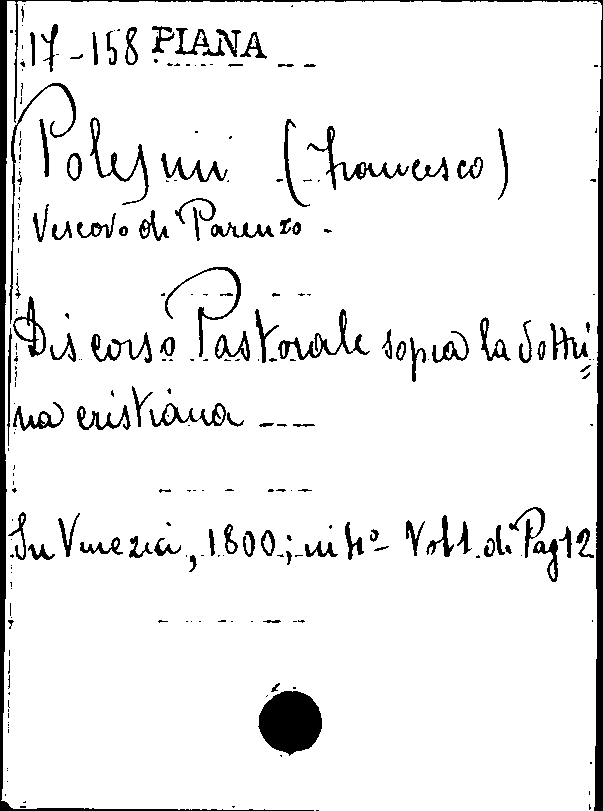 17-158 PIANA
Polesini (Francesco)
Vescovo di Parenzo -
Discorso Pastorale sopra la dottri=
na cristiana
In Venezia, 1800; in 4º Vol 1. di Pag 12